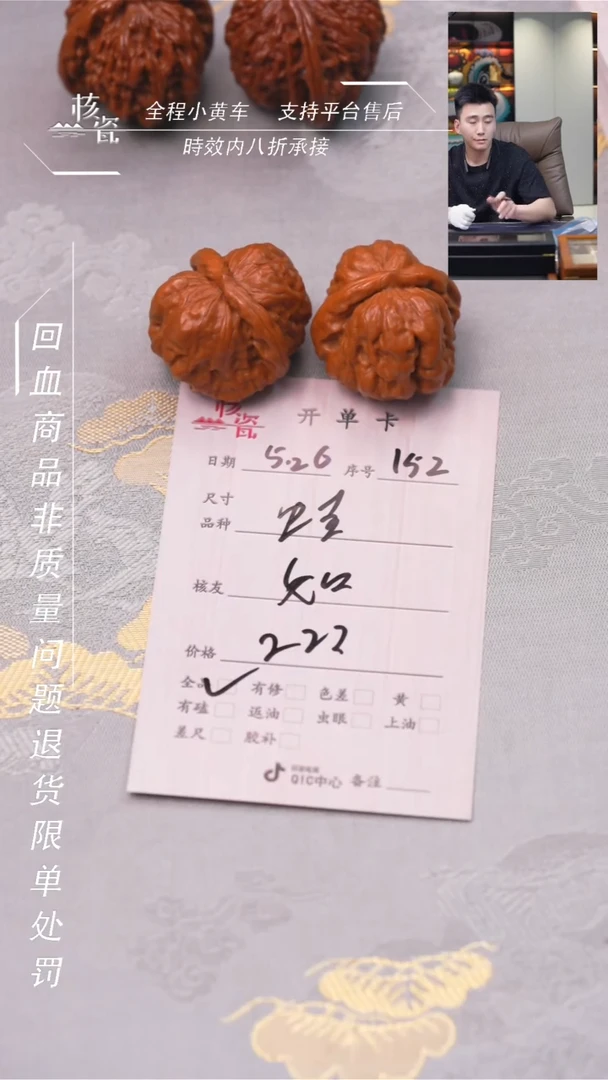 核瓷
全程小黄车 支持平台售后
時效内八折承接
回血商品非质量问题退货限单处罚
核瓷 开单卡
日期 5.26 序号 152
尺寸
品种
核友
价格
全品 有修 色差 黄
有磕 返油 虫眼 上油
差尺 胶补
QIC中心 备注